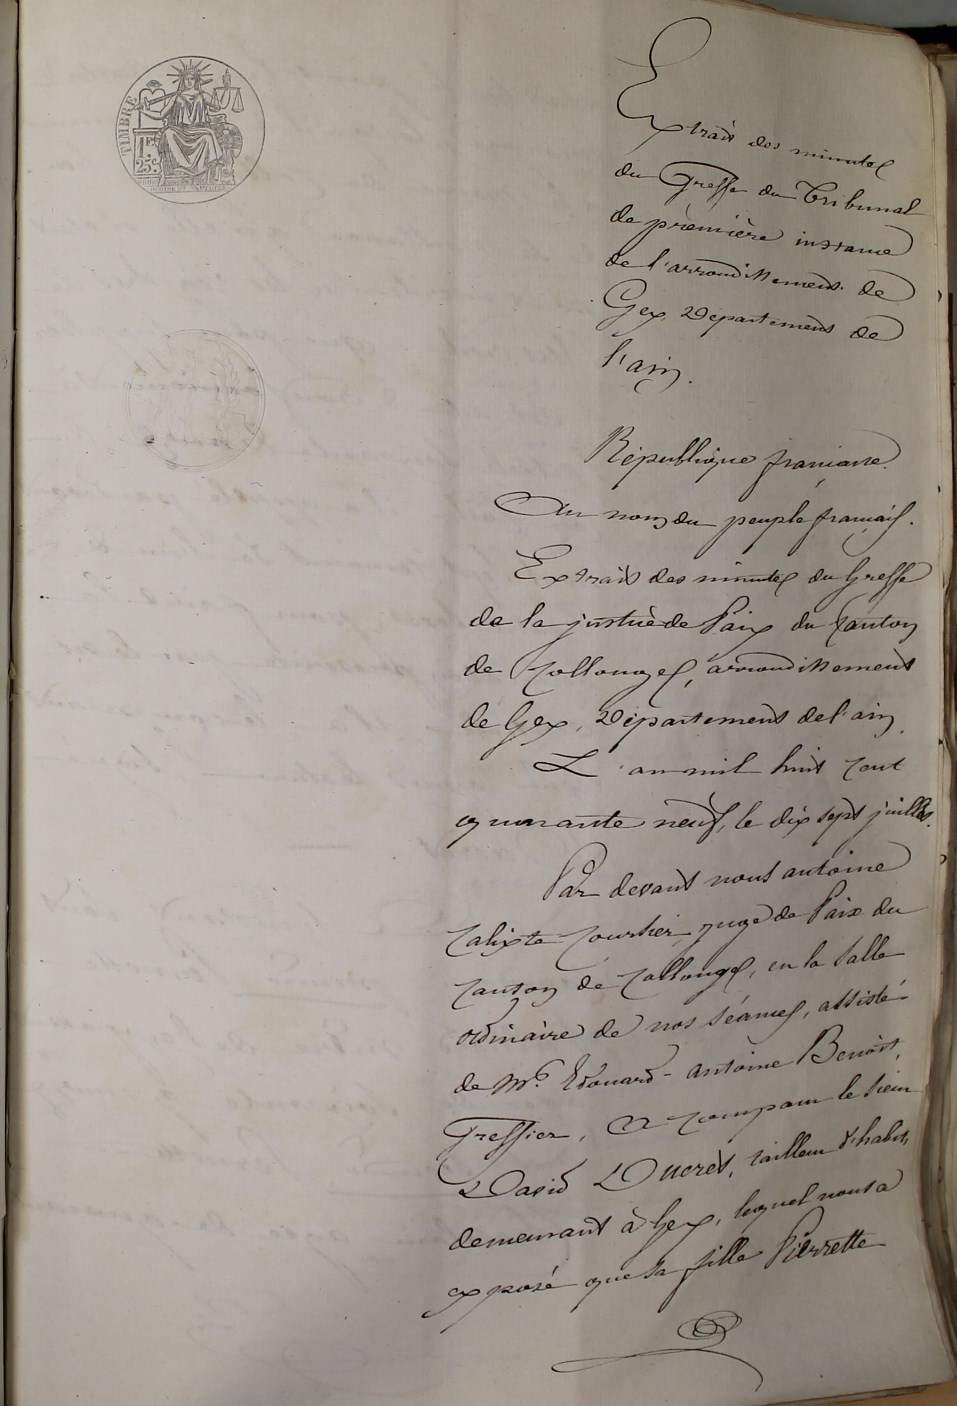 TIMBRE
1F.
25c.
Extrait des minutes
du Greffe du Tribunal
de première instance
de l'arrondissement de
Gex, Département de
l'ain.
République française.
Au nom du peuple français.
Extrait des minutes du Greffe
de la justice de Paix du Canton
de Collonges, arrondissement
de Gex, Département de l'ain
L'an mil huit cent
quarante neuf, le dix sept juillet.
Par devant nous antoine
Calixte juge de Paix du
canton de Collonges, en la salle
ordinaire de nos séances, assisté
de Mr. Edouard-antoine Benoit,
Greffier, a comparu le sieur
David Ducrèt, tailleur d'habits,
demeurant à Gex, lequel nous a
exposé que sa fille Pierrette